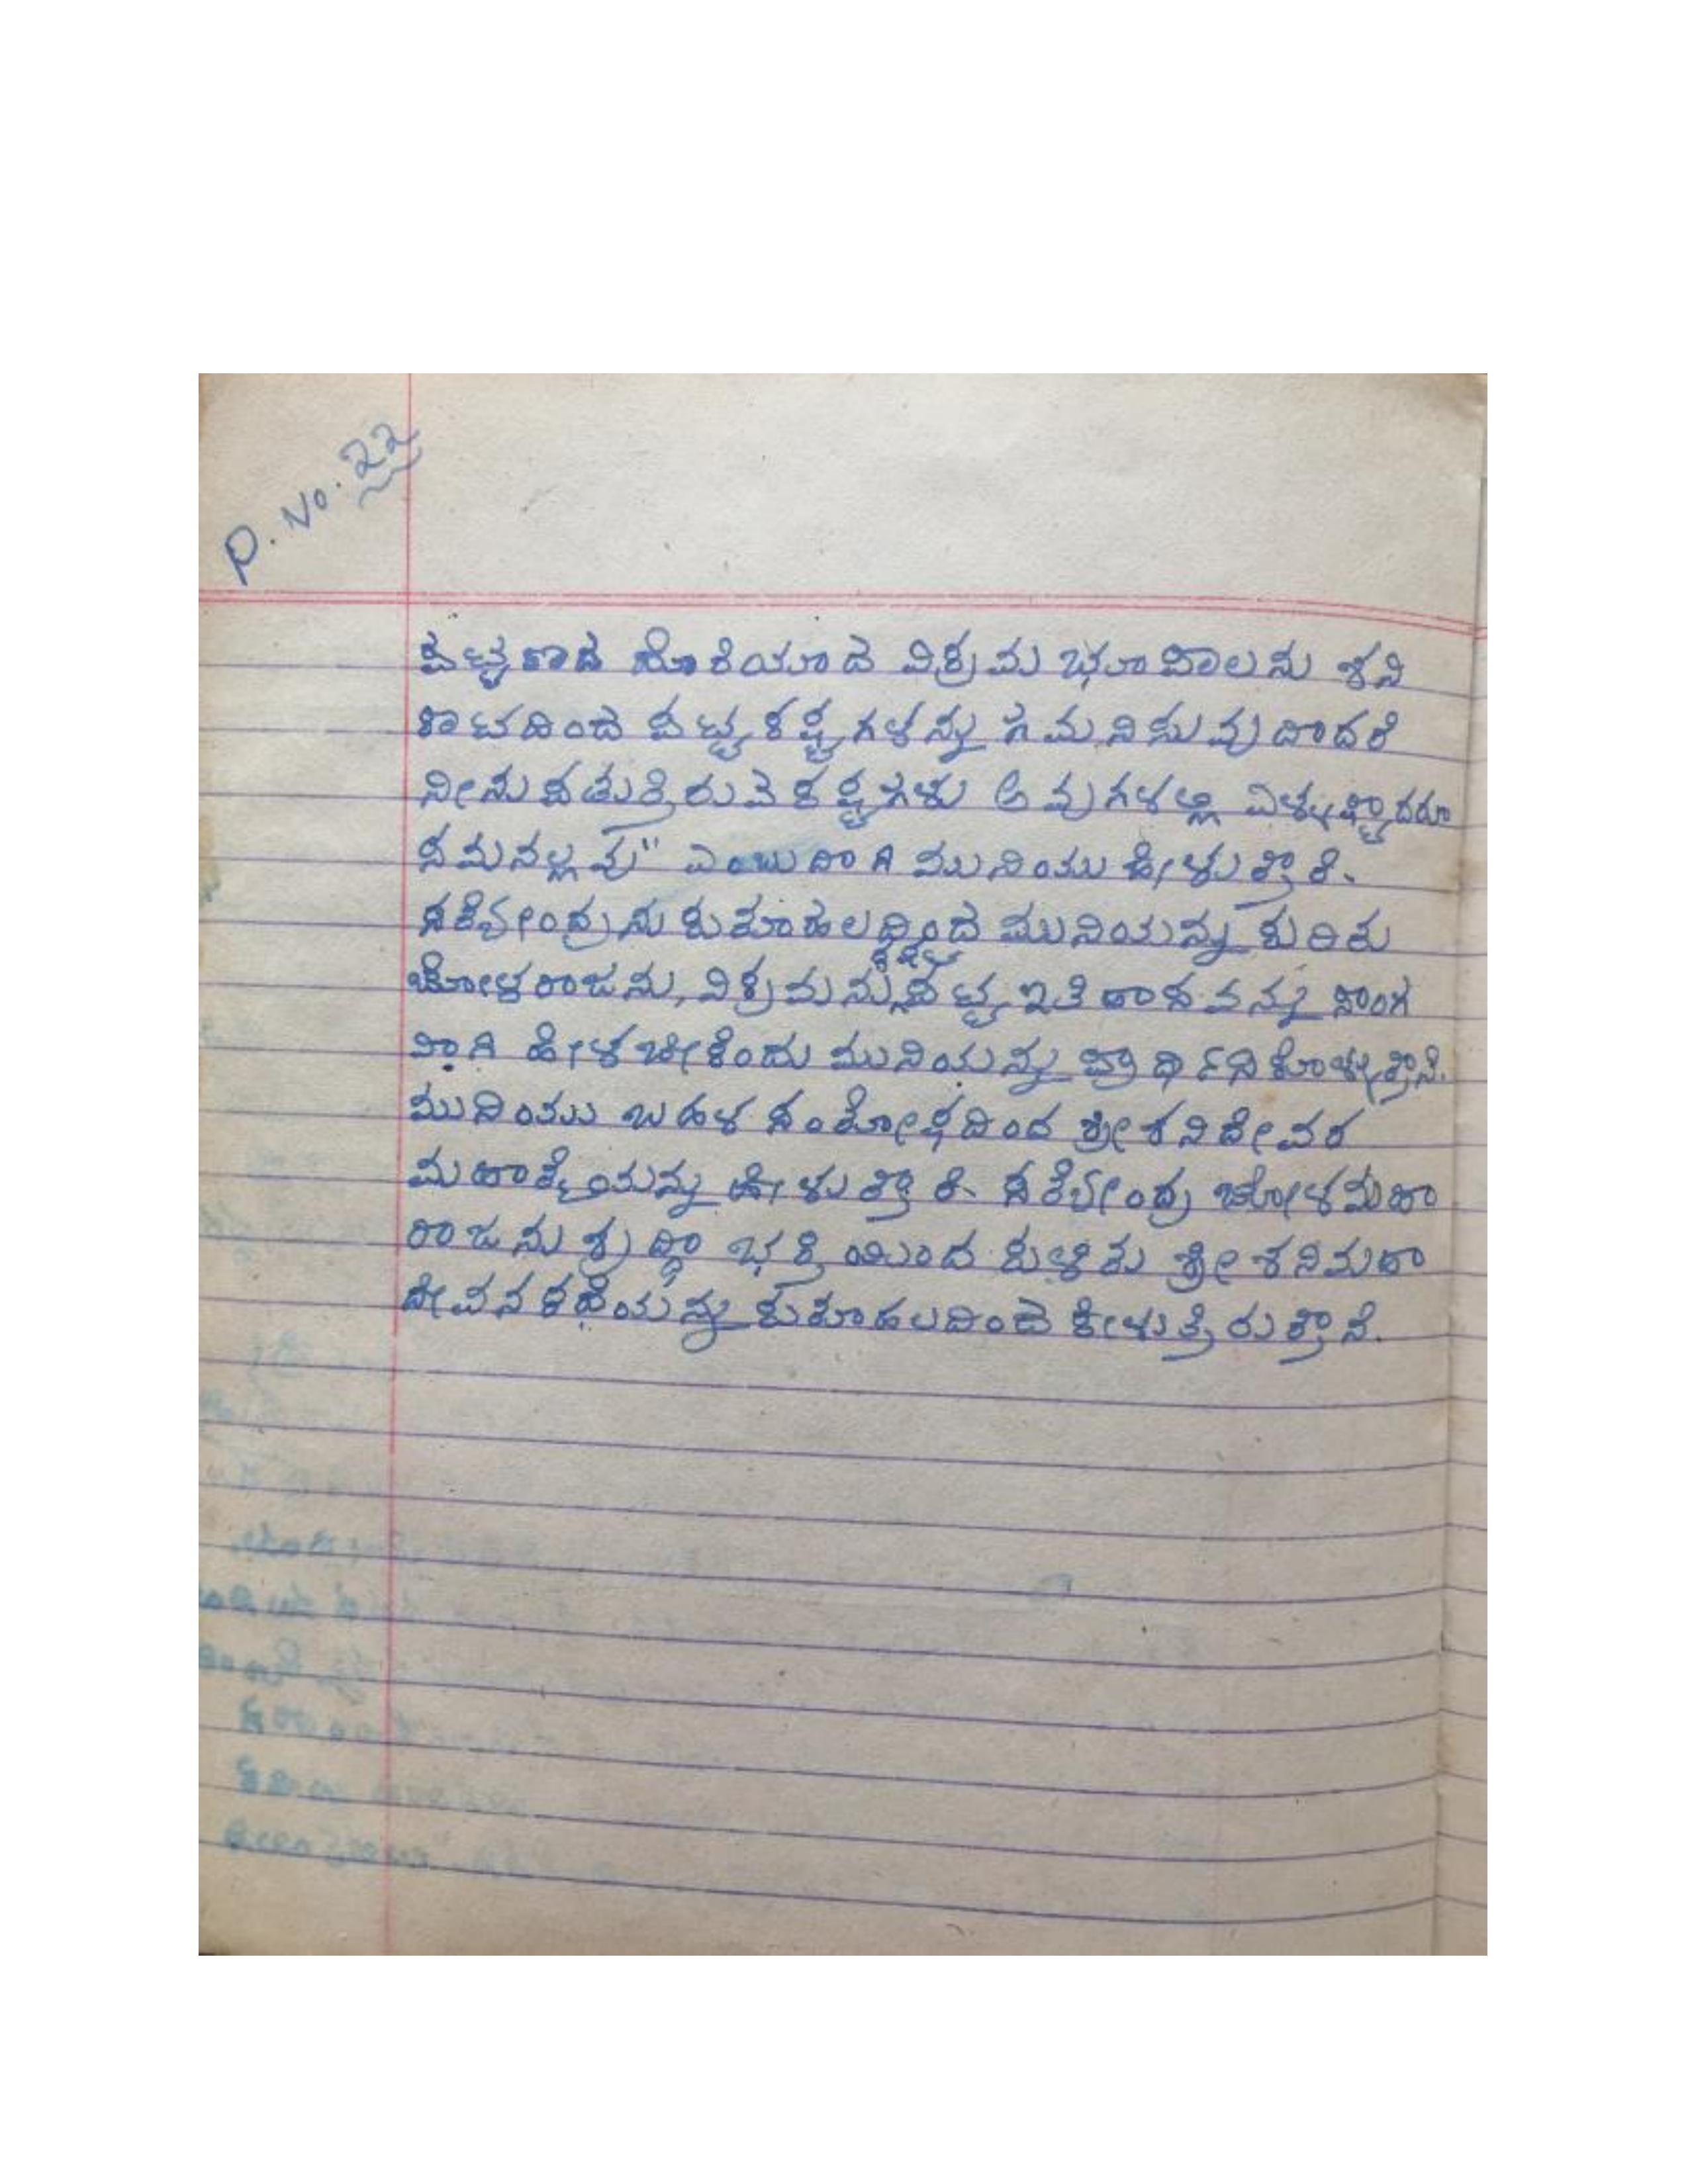 P. No. 22
ಪಟ್ಟಣದ ದೊರೆಯಾದ ವಿಕ್ರಮ ಭೂಪಾಲನು ಶನಿ
ಕಾಟದಿಂದ ಪಟ್ಟ ಕಷ್ಟಗಳನ್ನು ಗಮನಿಸುವುದಾದರೆ
ನೀನು ಪಡುತ್ತಿರುವ ಕಷ್ಟಗಳು ಅವುಗಳಲ್ಲಿ ಎಳ್ಳಷ್ಟಾದರೂ
ಸಮನಲ್ಲವು" ಎಂಬುದಾಗಿ ಮುನಿಯು ಹೇಳುತ್ತಾರೆ.
ನರೇಂದ್ರನು ಕುತೂಹಲದಿಂದ ಮುನಿಯನ್ನು ಕುರಿತು
ಚೋಳರಾಜನು, ವಿಕ್ರಮನು ಪಟ್ಟ ಇತಿಹಾಸವನ್ನು ಸಾಂಗ
ವಾಗಿ ಹೇಳಬೇಕೆಂದು ಮುನಿಯನ್ನು ಪ್ರಾರ್ಥಿಸಿಕೊಳ್ಳುತ್ತಾನೆ.
ಮುನಿಯು ಬಹಳ ಸಂತೋಷದಿಂದ ಶ್ರೀ ಶನಿದೇವರ
ಮಹಾತ್ಮೆಯನ್ನು ಹೇಳುತ್ತಾರೆ. ಚೋಳಮಹಾ
ರಾಜನು ಶ್ರದ್ಧಾ ಭಕ್ತಿಯಿಂದ ಕುಳಿತು ಶ್ರೀ ಶನಿಮಹಾ
ದೇವನ ಕಥೆಯನ್ನು ಕುತೂಹಲದಿಂದ ಕೇಳುತ್ತಿರುತ್ತಾನೆ.